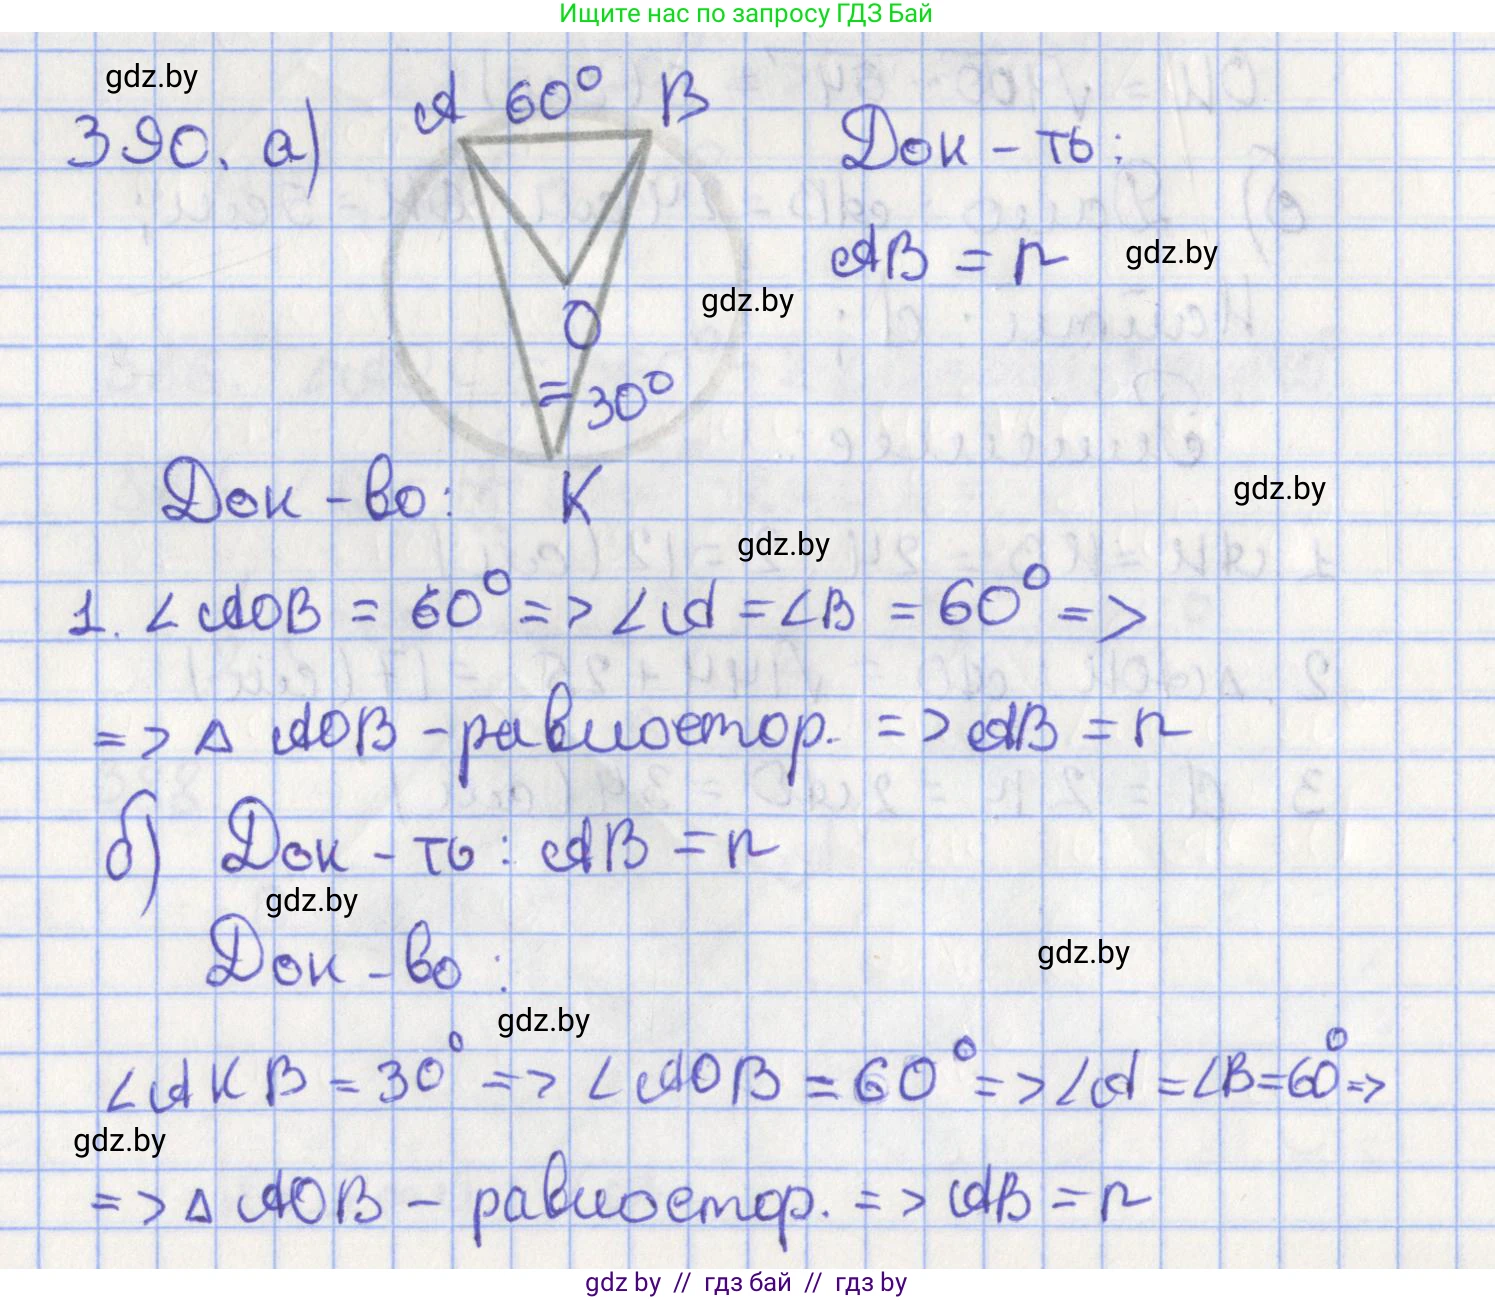 Ищите нас по запросу ГДЗ Бай
gdz.by
390. а)
A 60° B
Док-ть:
AB = r
gdz.by
gdz.by
O
= 30°
K
Док-во:
gdz.by
gdz.by
1. ∠AOB = 60° => ∠A = ∠B = 60° =>
=> △ AOB - равностор. => AB = r
б) Док-ть: AB = r
gdz.by
Док-во:
gdz.by
gdz.by
∠AKB = 30° => ∠AOB = 60° => ∠A = ∠B = 60° =>
gdz.by
=> △ AOB - равностор. => AB = r
gdz by // гдз бай // гдз by